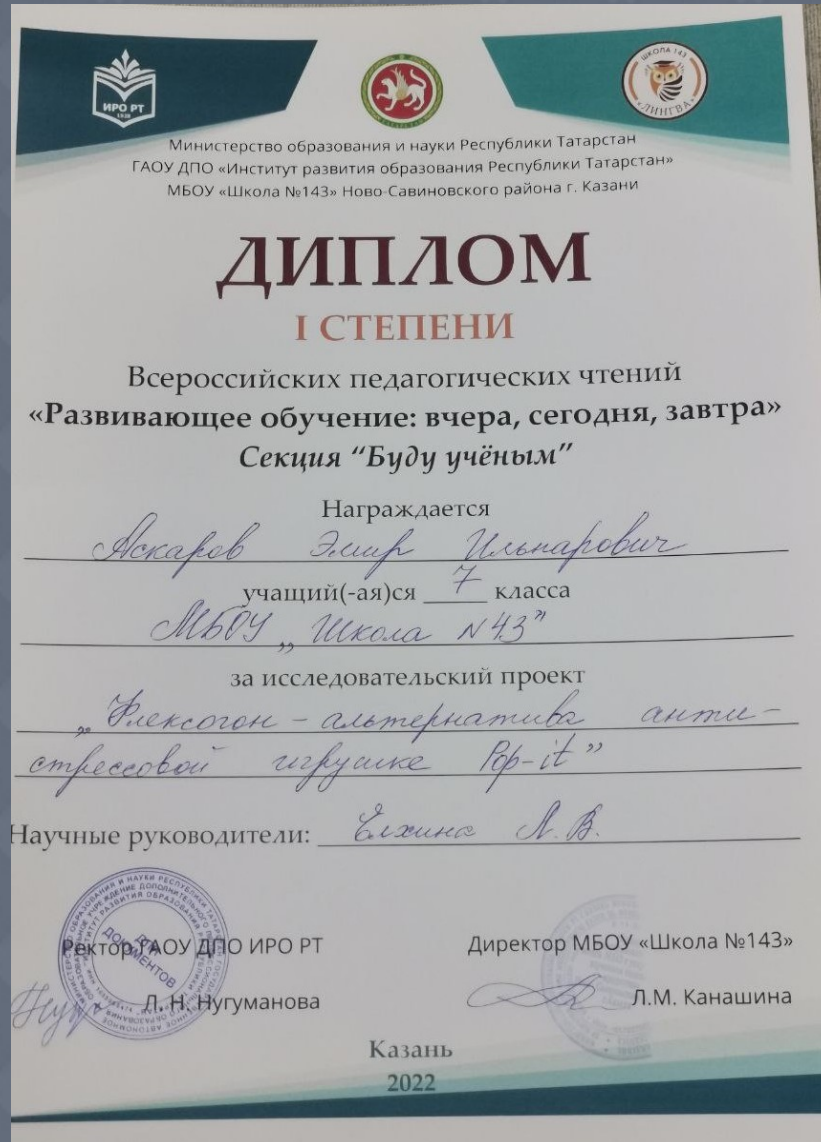 ИРО РТ
1920
ШКОЛА 143
«ЛИНГВА»
Министерство образования и науки Республики Татарстан
ГАОУ ДПО «Институт развития образования Республики Татарстан»
МБОУ «Школа №143» Ново-Савиновского района г. Казани
ДИПЛОМ
I СТЕПЕНИ
Всероссийских педагогических чтений
«Развивающее обучение: вчера, сегодня, завтра»
Секция “Буду учёным”
Награждается
Аскаров Эмир Ильнарович
учащий(-ая)ся 7 класса
МБОУ „Школа N43”
за исследовательский проект
„Флексогон – альтернатива анти-
стрессовой игрушке Pop-it”
Научные руководители: Елхина Л. В.
ДЛЯ ДОКУМЕНТОВ
Ректор ГАОУ ДПО ИРО РТ
Директор МБОУ «Школа №143»
Л. Н. Нугуманова
Л.М. Канашина
Казань
2022